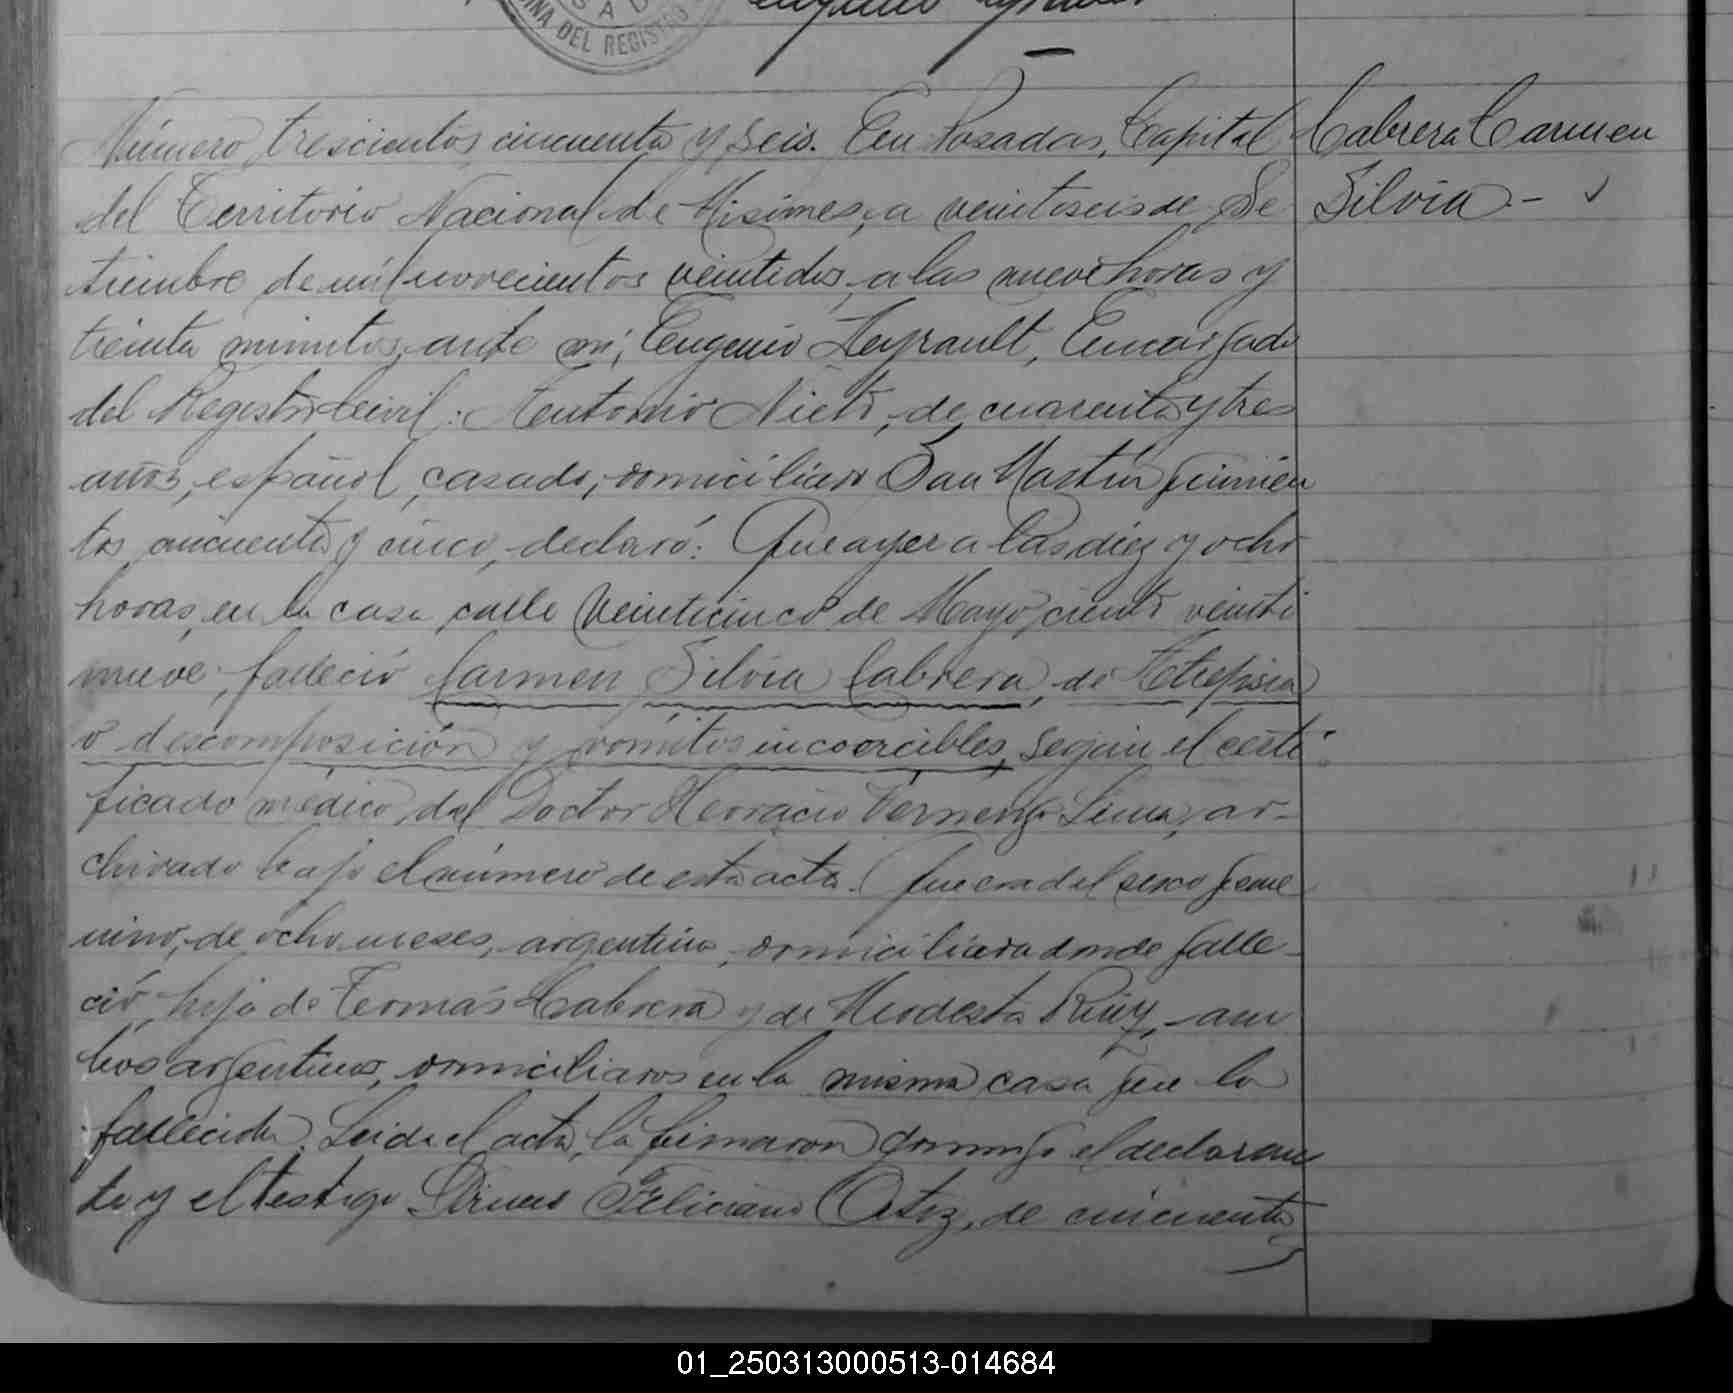 DEL REGISTRO
Número trescientos cincuenta y seis. En Posadas, Capital
del Territorio Nacional de Misiones, a veintiseis de Se
tiembre de mil novecientos veintidos, a las nueve horas y
treinta minutos, ante mi, Eugenio Leyrault, Encargado
del Registro Civil: Antonio Nieto, de cuarenta y tres
años, español, casado, domiciliado San Martín quinien
tos cincuenta y cinco, declaró: Que ayer a las diez y ocho
horas, en la casa calle Veinticinco de Mayo ciento veinti
nueve, falleció Carmen Silvia Cabrera, de Atrepsia
o descomposición y vomitos incoercibles, según el certi
ficado médico del Doctor Horracio Vernengo Lima, ar-
chivado bajo el número de esta acta. Que era del sexo feme
nino, de ocho meses, argentina, domiciliada donde falle-
ció, hija de Tomás Cabrera y de Modesta Ruiz, am
bos argentinos, domiciliados en la misma casa que la
fallecida. Leida el acta, la firmaron conmigo el declaran
te y el testigo Feliciano Ortiz, de cincuenta
Cabrera Carmen
Silvia -
01_250313000513-014684